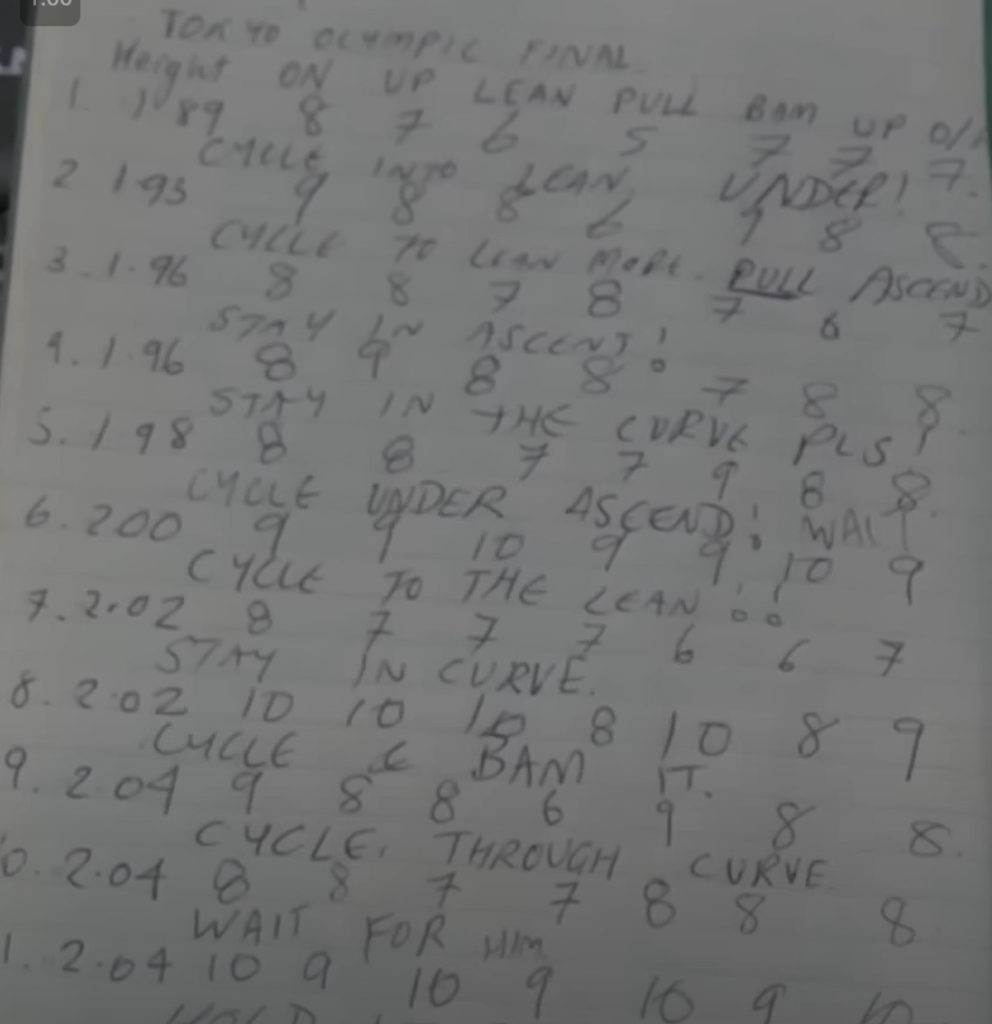 1:00
TOKYO OLYMPIC FINAL
Height ON UP LEAN PULL BAM UP O/A
1. 1 89 8 7 6 5 7 7 7.
CYCLE INTO LEAN, UNDER!
2 1.93 9 8 8 6 9 8 8.
CYCLE TO LEAN MORE. PULL ASCEND
3. 1.96 8 8 7 8 7 6 7
STAY IN ASCENT!
4. 1.96 8 9 8 8 7 8 8.
STAY IN THE CURVE PLS!
5. 1 98 8 8 7 7 9 8 8.
CYCLE UNDER ASCEND! WAIT
6. 2.00 9 9 10 9 9 10 9
CYCLE TO THE LEAN!!
7. 2.02 8 7 7 7 6 6 7
STAY IN CURVE.
8. 2.02 10 10 10 8 10 8 9
CYCLE & BAM IT.
9. 2.04 9 8 8 6 9 8 8.
CYCLE. THROUGH CURVE
0. 2.04 8 8 7 7 8 8 8
WAIT FOR HIM
1. 2.04 10 9 10 9 10 9 10
HOLD